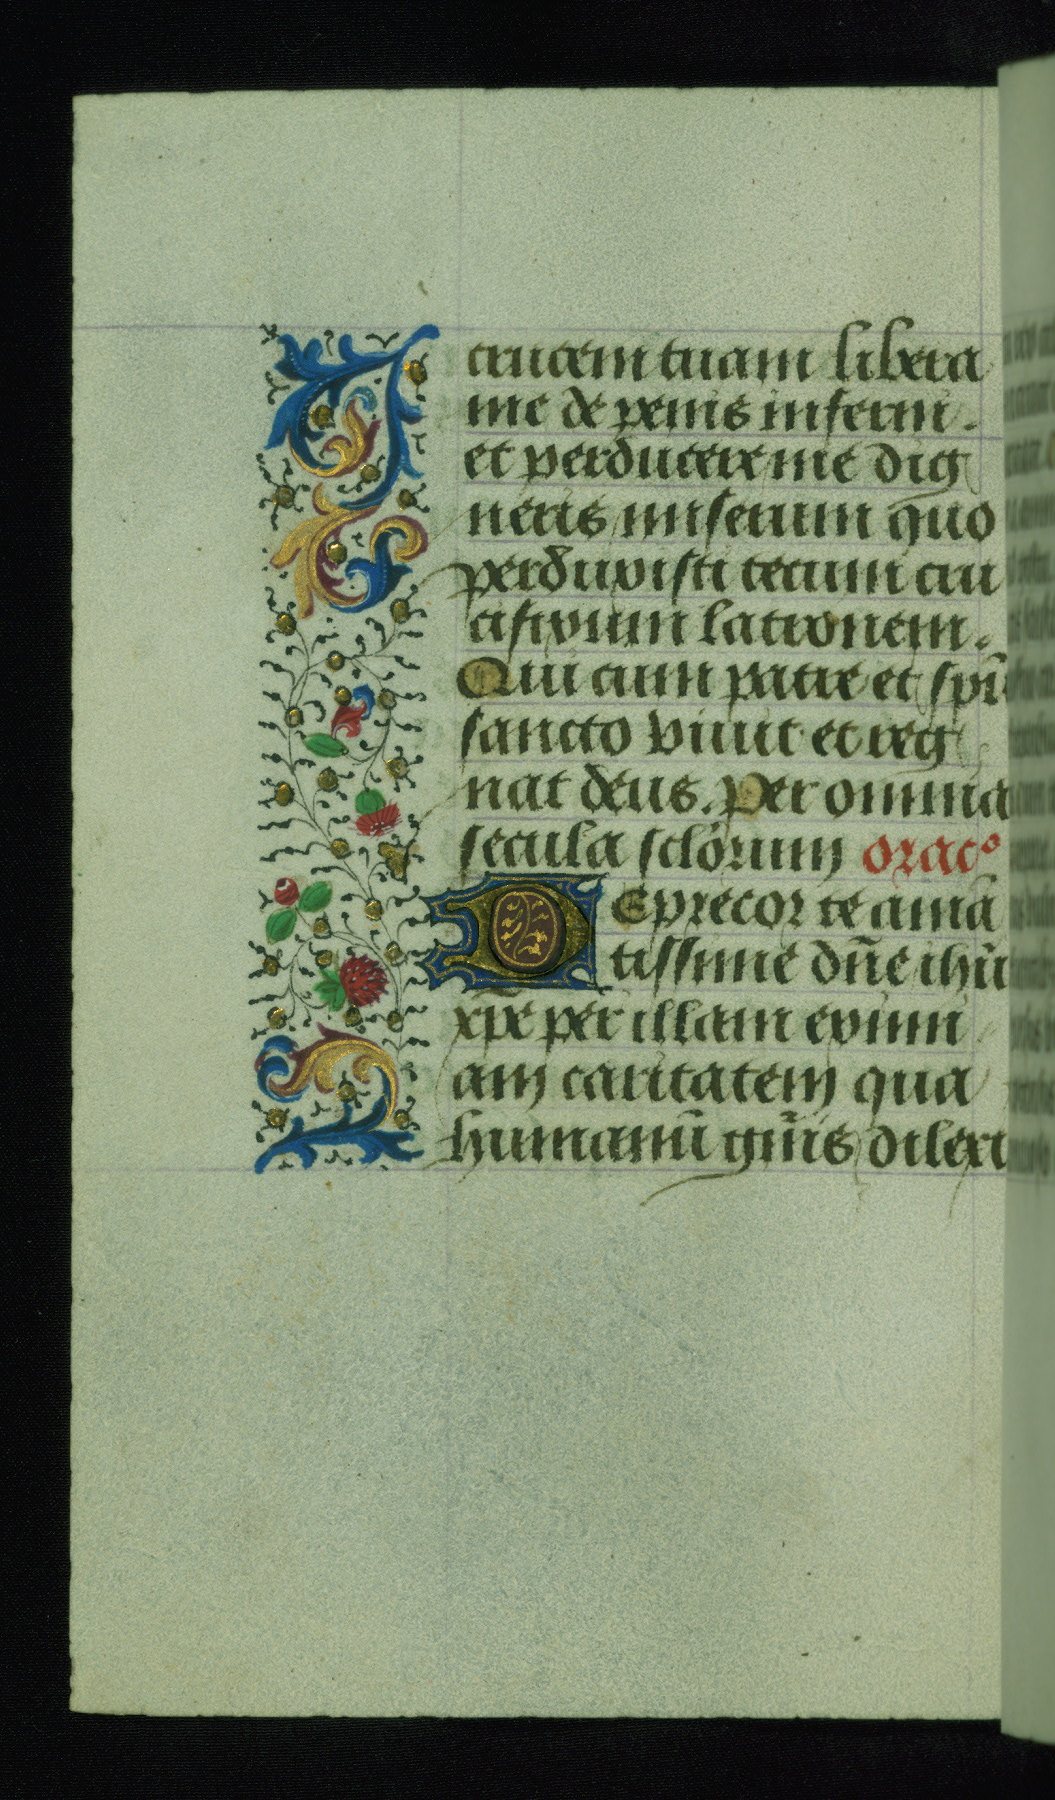 crucem tuam libera
me de penis inferni.
et perducere me dig
neris miserum quo
perduxisti tecum cru
cifixum latronem.
Qui cum patre et spũ
sancto viuit et reg
nat deus. Per omnia
secula sclorum oraco
Deprecor te amã
tissime dñe ihũ
xpe per illam eximi
am caritatem qua
humanũ gñis dilexi